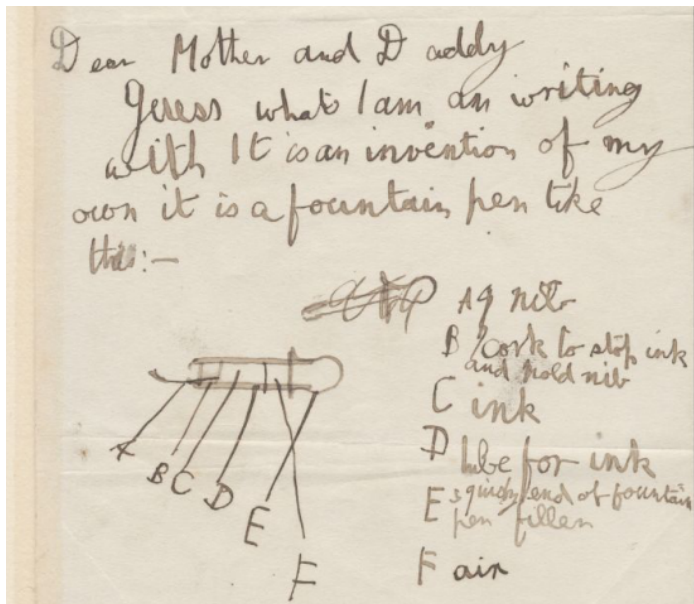 Dear Mother and Daddy
Guess what I am an writing
with It is an invention of my
own it is a fountain pen like
this:—
A nib
B cork to stop ink
and hold nib
C ink
D tube for ink
E squishy end of fountain
pen filler
F air
A
B
C
D
E
F